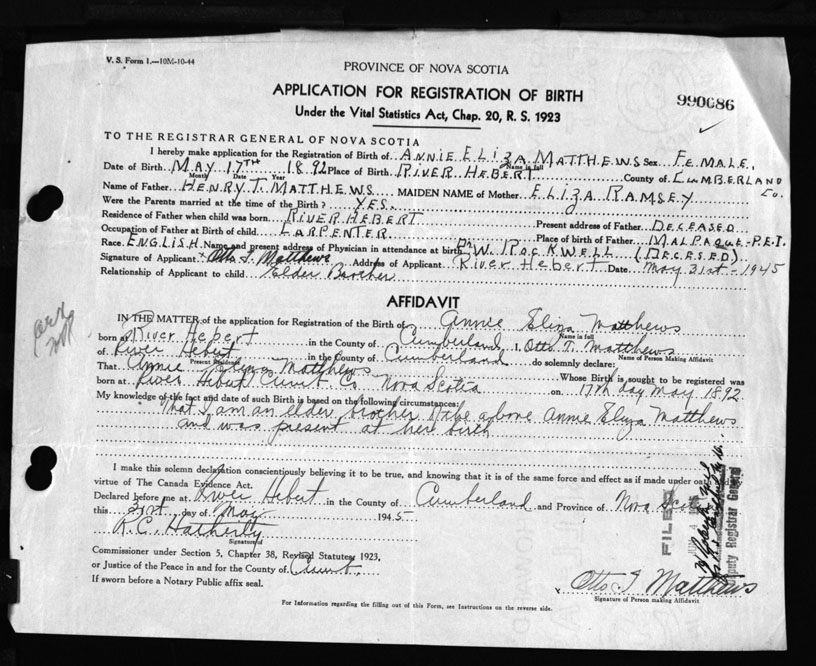 V. S. Form 1.—10M-10-44
PROVINCE OF NOVA SCOTIA
APPLICATION FOR REGISTRATION OF BIRTH
990686
Under the Vital Statistics Act, Chap. 20, R. S. 1923
TO THE REGISTRAR GENERAL OF NOVA SCOTIA
I hereby make application for the Registration of Birth of ANNIE ELIZA MATTHEWS Sex FEMALE.
Name in full
Date of Birth MAY 17TH 1892 Place of Birth RIVER HEBERT County of CUMBERLAND Co.
Month Date Year
Name of Father HENRY T. MATTHEWS MAIDEN NAME of Mother ELIZA RAMSEY
Were the Parents married at the time of the Birth? YES.
Residence of Father when child was born RIVER HEBERT Present address of Father DECEASED
Occupation of Father at Birth of child CARPENTER Place of birth of Father MALPAQUE-P.E.I.
Race ENGLISH Name and present address of Physician in attendance at birth Dr W. ROCKWELL (DECESED)
Signature of Applicant x Otto T. Matthews Address of Applicant River Hebert Date May 31st - 1945
Relationship of Applicant to child Elder Brother
AFFIDAVIT
IN THE MATTER of the application for Registration of the Birth of Annie Eliza Matthews
Name in full
born at River Hebert in the County of Cumberland I, Otto T. Matthews
Name of Person Making Affidavit
of River Hebert in the County of Cumberland do solemnly declare:
Present Residence
That Annie Eliza Matthews Whose Birth is sought to be registered was
born at River Hebert Cumb. Co Nova Scotia on 17th day May 1892
My knowledge of the fact and date of such Birth is based on the following circumstances:
That I am an elder brother of the above Annie Eliza Matthews
and was present at here birth
I make this solemn declaration conscientiously believing it to be true, and knowing that it is of the same force and effect as if made under oath by
virtue of The Canada Evidence Act.
Declared before me at River Hebert in the County of Cumberland and Province of Nova Scotia
this 31st day of May 1945
R.C. Hatherly
Signature of
Commissioner under Section 5, Chapter 38, Revised Statutes 1923,
or Justice of the Peace in and for the County of Cumb.
If sworn before a Notary Public affix seal.
x Otto T Matthews
Signature of Person making Affidavit
For Information regarding the filling out of this Form, see Instructions on the reverse side.
FILED
Deputy Registrar General